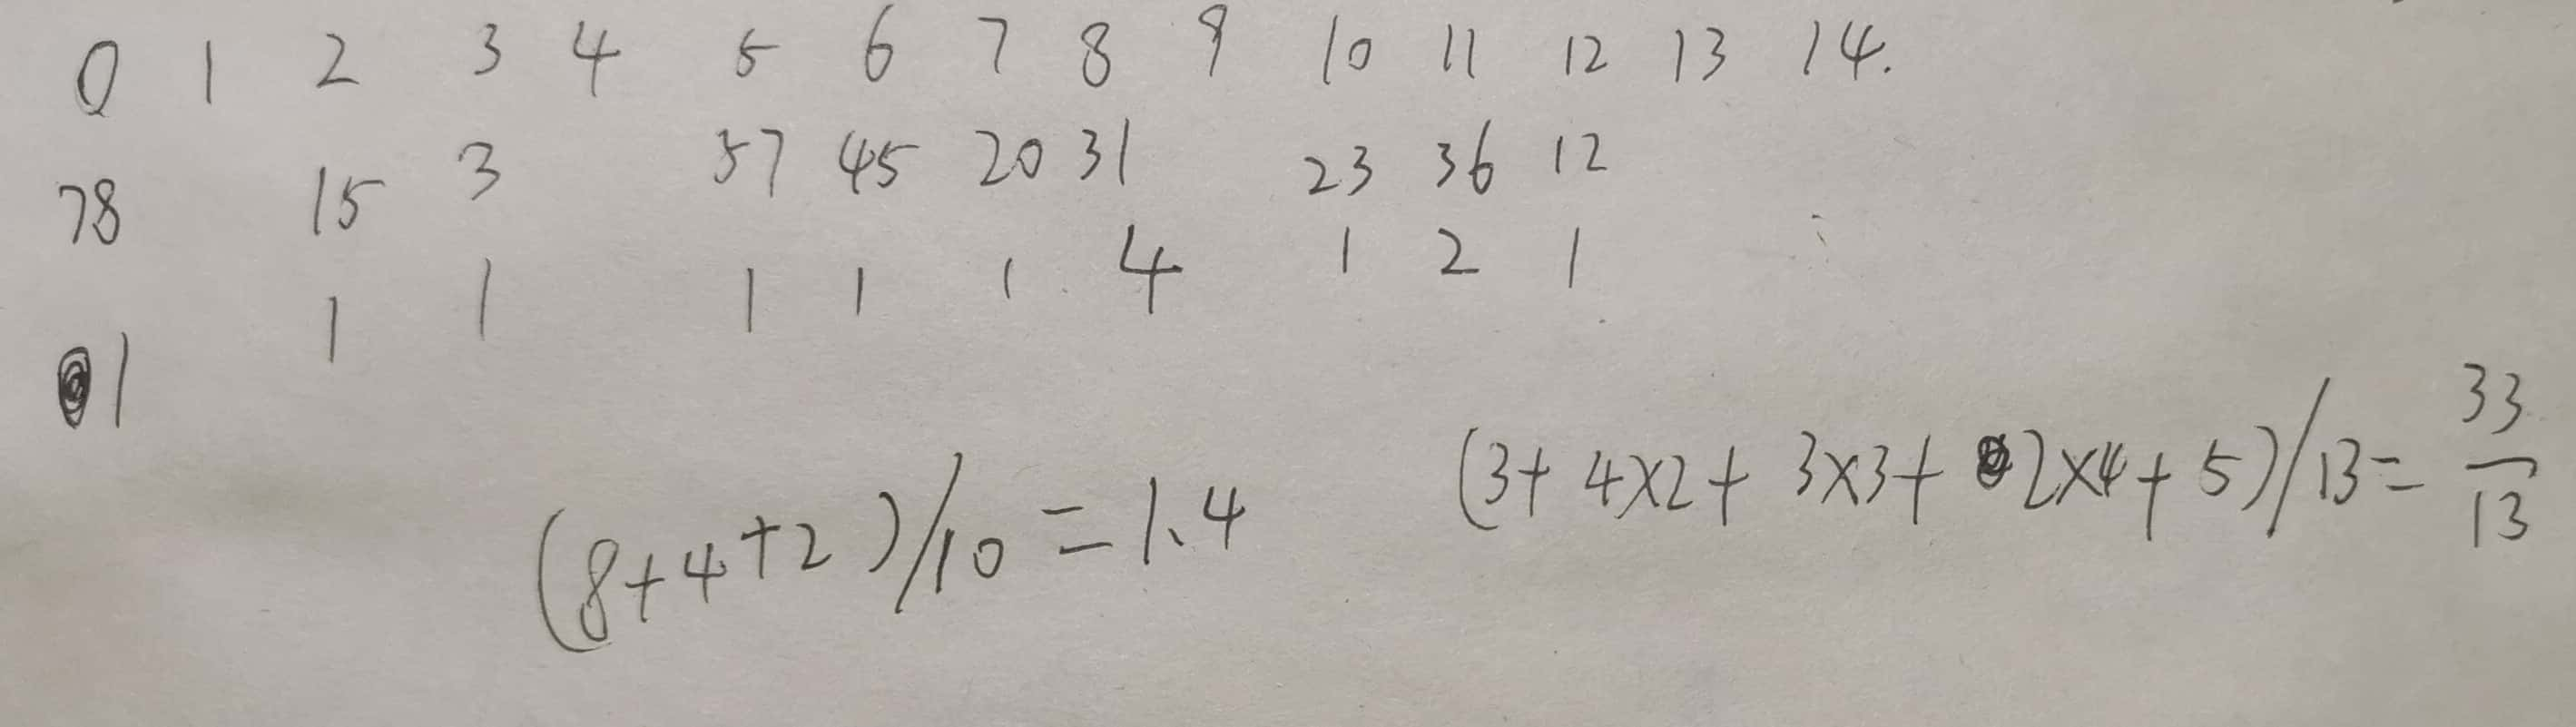 0 1 2 3 4 5 6 7 8 9 10 11 12 13 14.
78 15 3 57 45 20 31 23 36 12
1 1 1 1 1 1 4 1 2 1
(8+4+2)/10=1.4
(3+4×2+3×3+2×4+5)/13=33/13